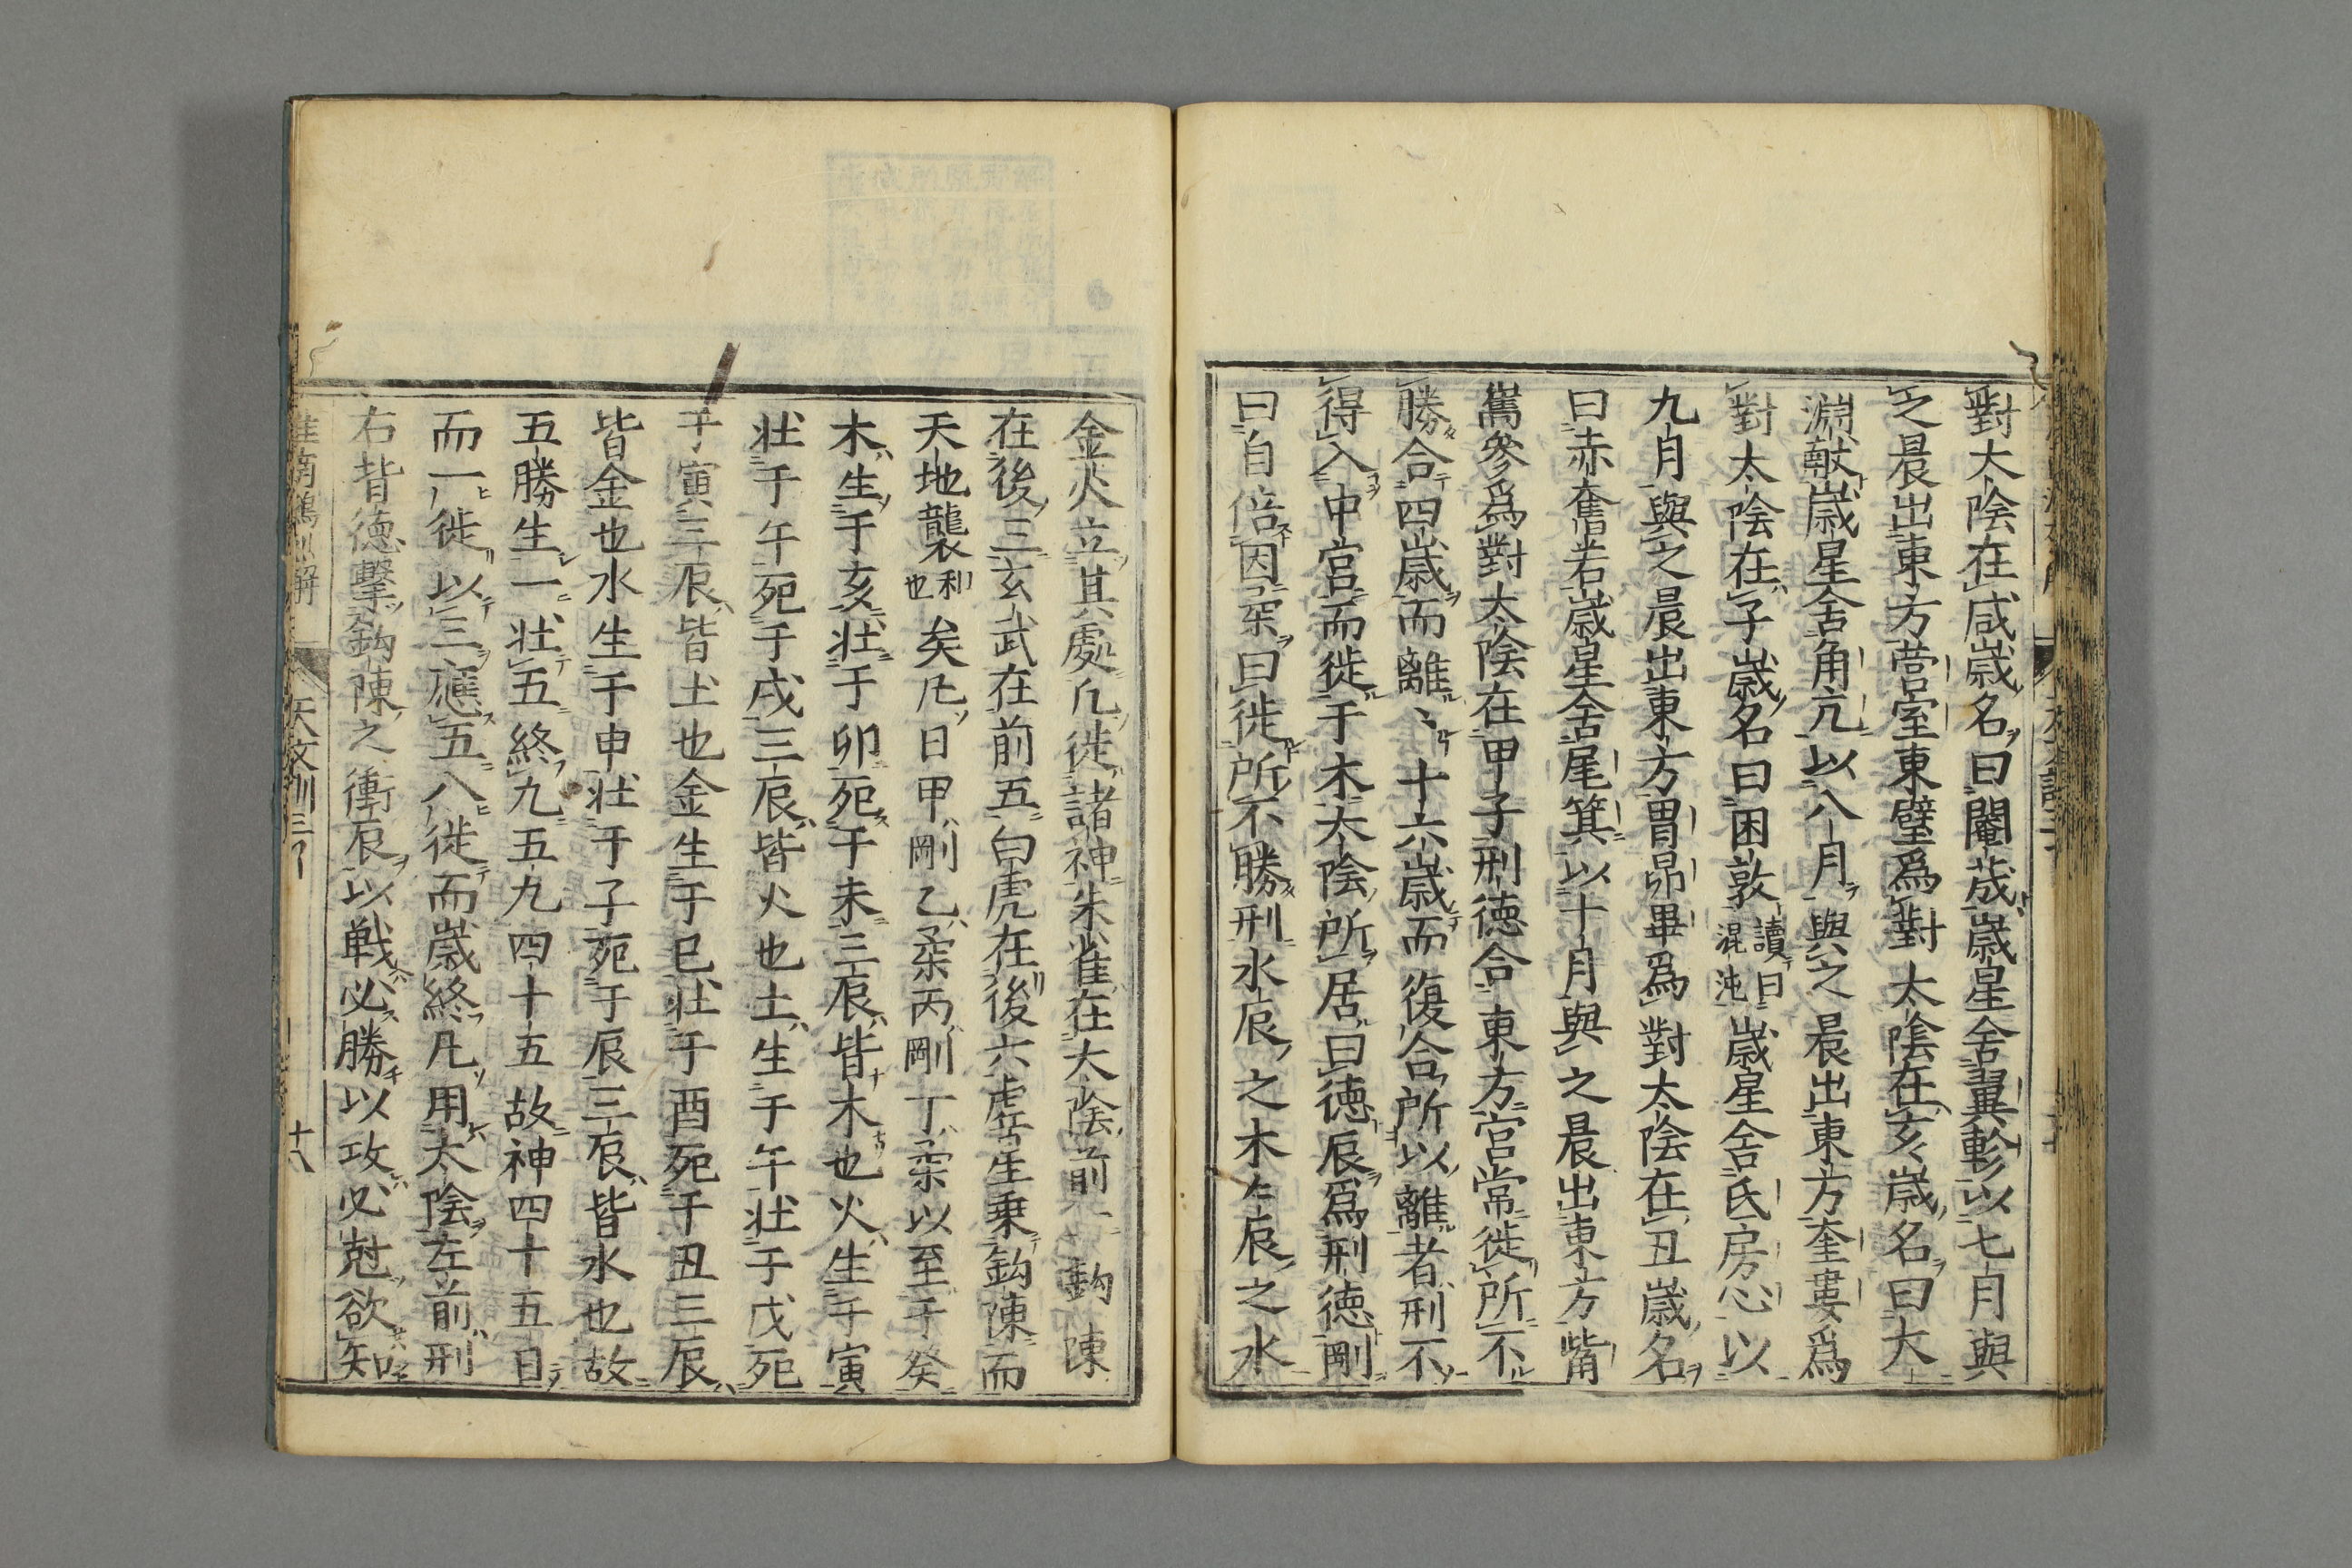 對大陰在戌歳名曰閹茂歳星舍翼軫以七月與
之晨出東方營室東壁爲對太陰在亥歳名曰大
淵獻歳星舍角亢以八月與之晨出東方奎婁爲
對太陰在子歳名曰困敦讀曰混沌歳星舍氐房心以
九月與之晨出東方胃昴畢爲對太陰在丑歳名
曰赤奮若歳星舍尾箕以十月與之晨出東方觜
觿參爲對太陰在甲子刑徳合東方宮常徙所不
勝合四歳而離〻十六歳而復合所以離者刑不
得入中宮而徙于木太陰所居曰徳辰爲刑徳剛
曰自倍因柔曰徙所不勝刑水辰之木木辰之水
金火立其處凡徙諸神朱雀在大陰前一鈎陳
在後三玄武在前五白虎在後六虚星乗鈎陳而
天地襲和也矣凡日甲剛乙柔丙剛丁柔以至于癸
木生于亥壮于卯死于未三辰皆木也火生于寅
壮于午死于戌三辰皆火也土生于午壮于戌死
于寅三辰皆土也金生于巳壮于酉死于丑三辰
皆金也水生于申壮于子死于辰三辰皆水也故
五勝生一壮五終九五九四十五故神四十五日
而一徙以三應五八徙而歳終凡用太陰左前刑
右背徳擊鈎陳之衝辰以戦必勝以攻必尅欲知
淮南鴻烈解 天文訓三 十八